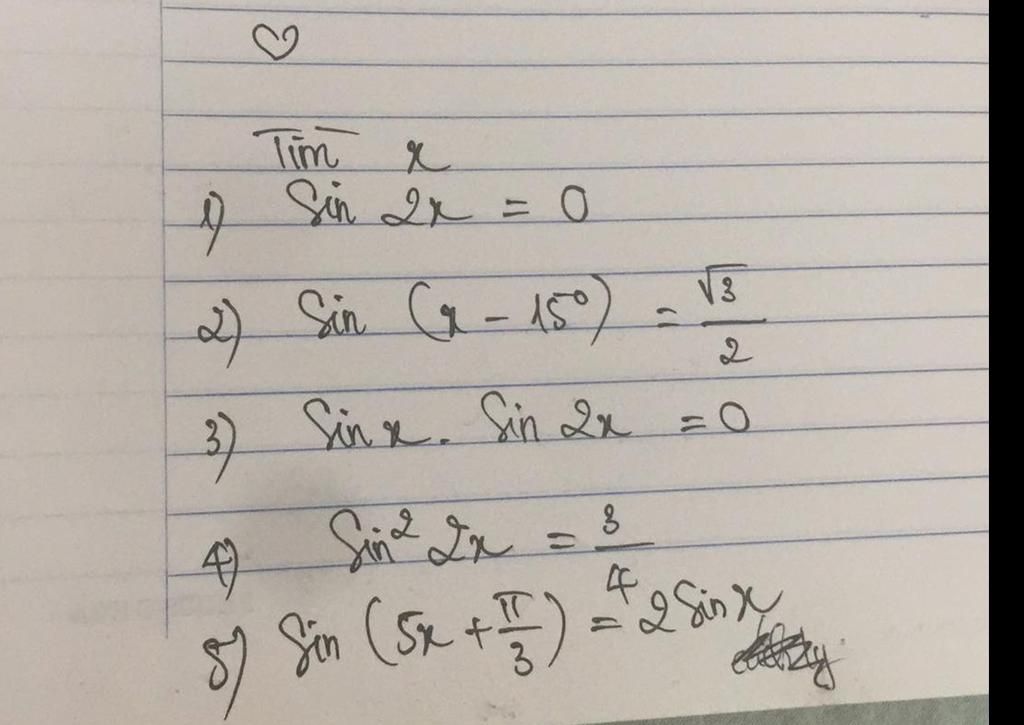 Tìm x
1) Sin 2x = 0
2) Sin (x - 15°) = √3/2
3) Sin x. Sin 2x = 0
4) Sin² 2x = 3/4
5) Sin (5x + π/3) = 2 Sin x